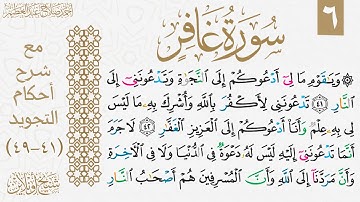 ٦
سُورَةُ غَافِرٍ
مع
شرح
أحكام
التجويد
(٤١-٤٩)
۞ وَيَٰقَوْمِ مَا لِيٓ أَدْعُوكُمْ إِلَى ٱلنَّجَوٰةِ وَتَدْعُونَنِيٓ إِلَى
ٱلنَّارِ ٤١ تَدْعُونَنِي لِأَكْفُرَ بِٱللَّهِ وَأُشْرِكَ بِهِۦ مَا لَيْسَ
لِي بِهِۦ عِلْمٌ وَأَنَا۠ أَدْعُوكُمْ إِلَى ٱلْعَزِيزِ ٱلْغَفَّٰرِ ٤٢ لَا جَرَمَ
أَنَّمَا تَدْعُونَنِيٓ إِلَيْهِ لَيْسَ لَهُۥ دَعْوَةٌ فِي ٱلدُّنْيَا وَلَا فِي ٱلْأٓخِرَةِ
وَأَنَّ مَرَدَّنَآ إِلَى ٱللَّهِ وَأَنَّ ٱلْمُسْرِفِينَ هُمْ أَصْحَٰبُ ٱلنَّارِ